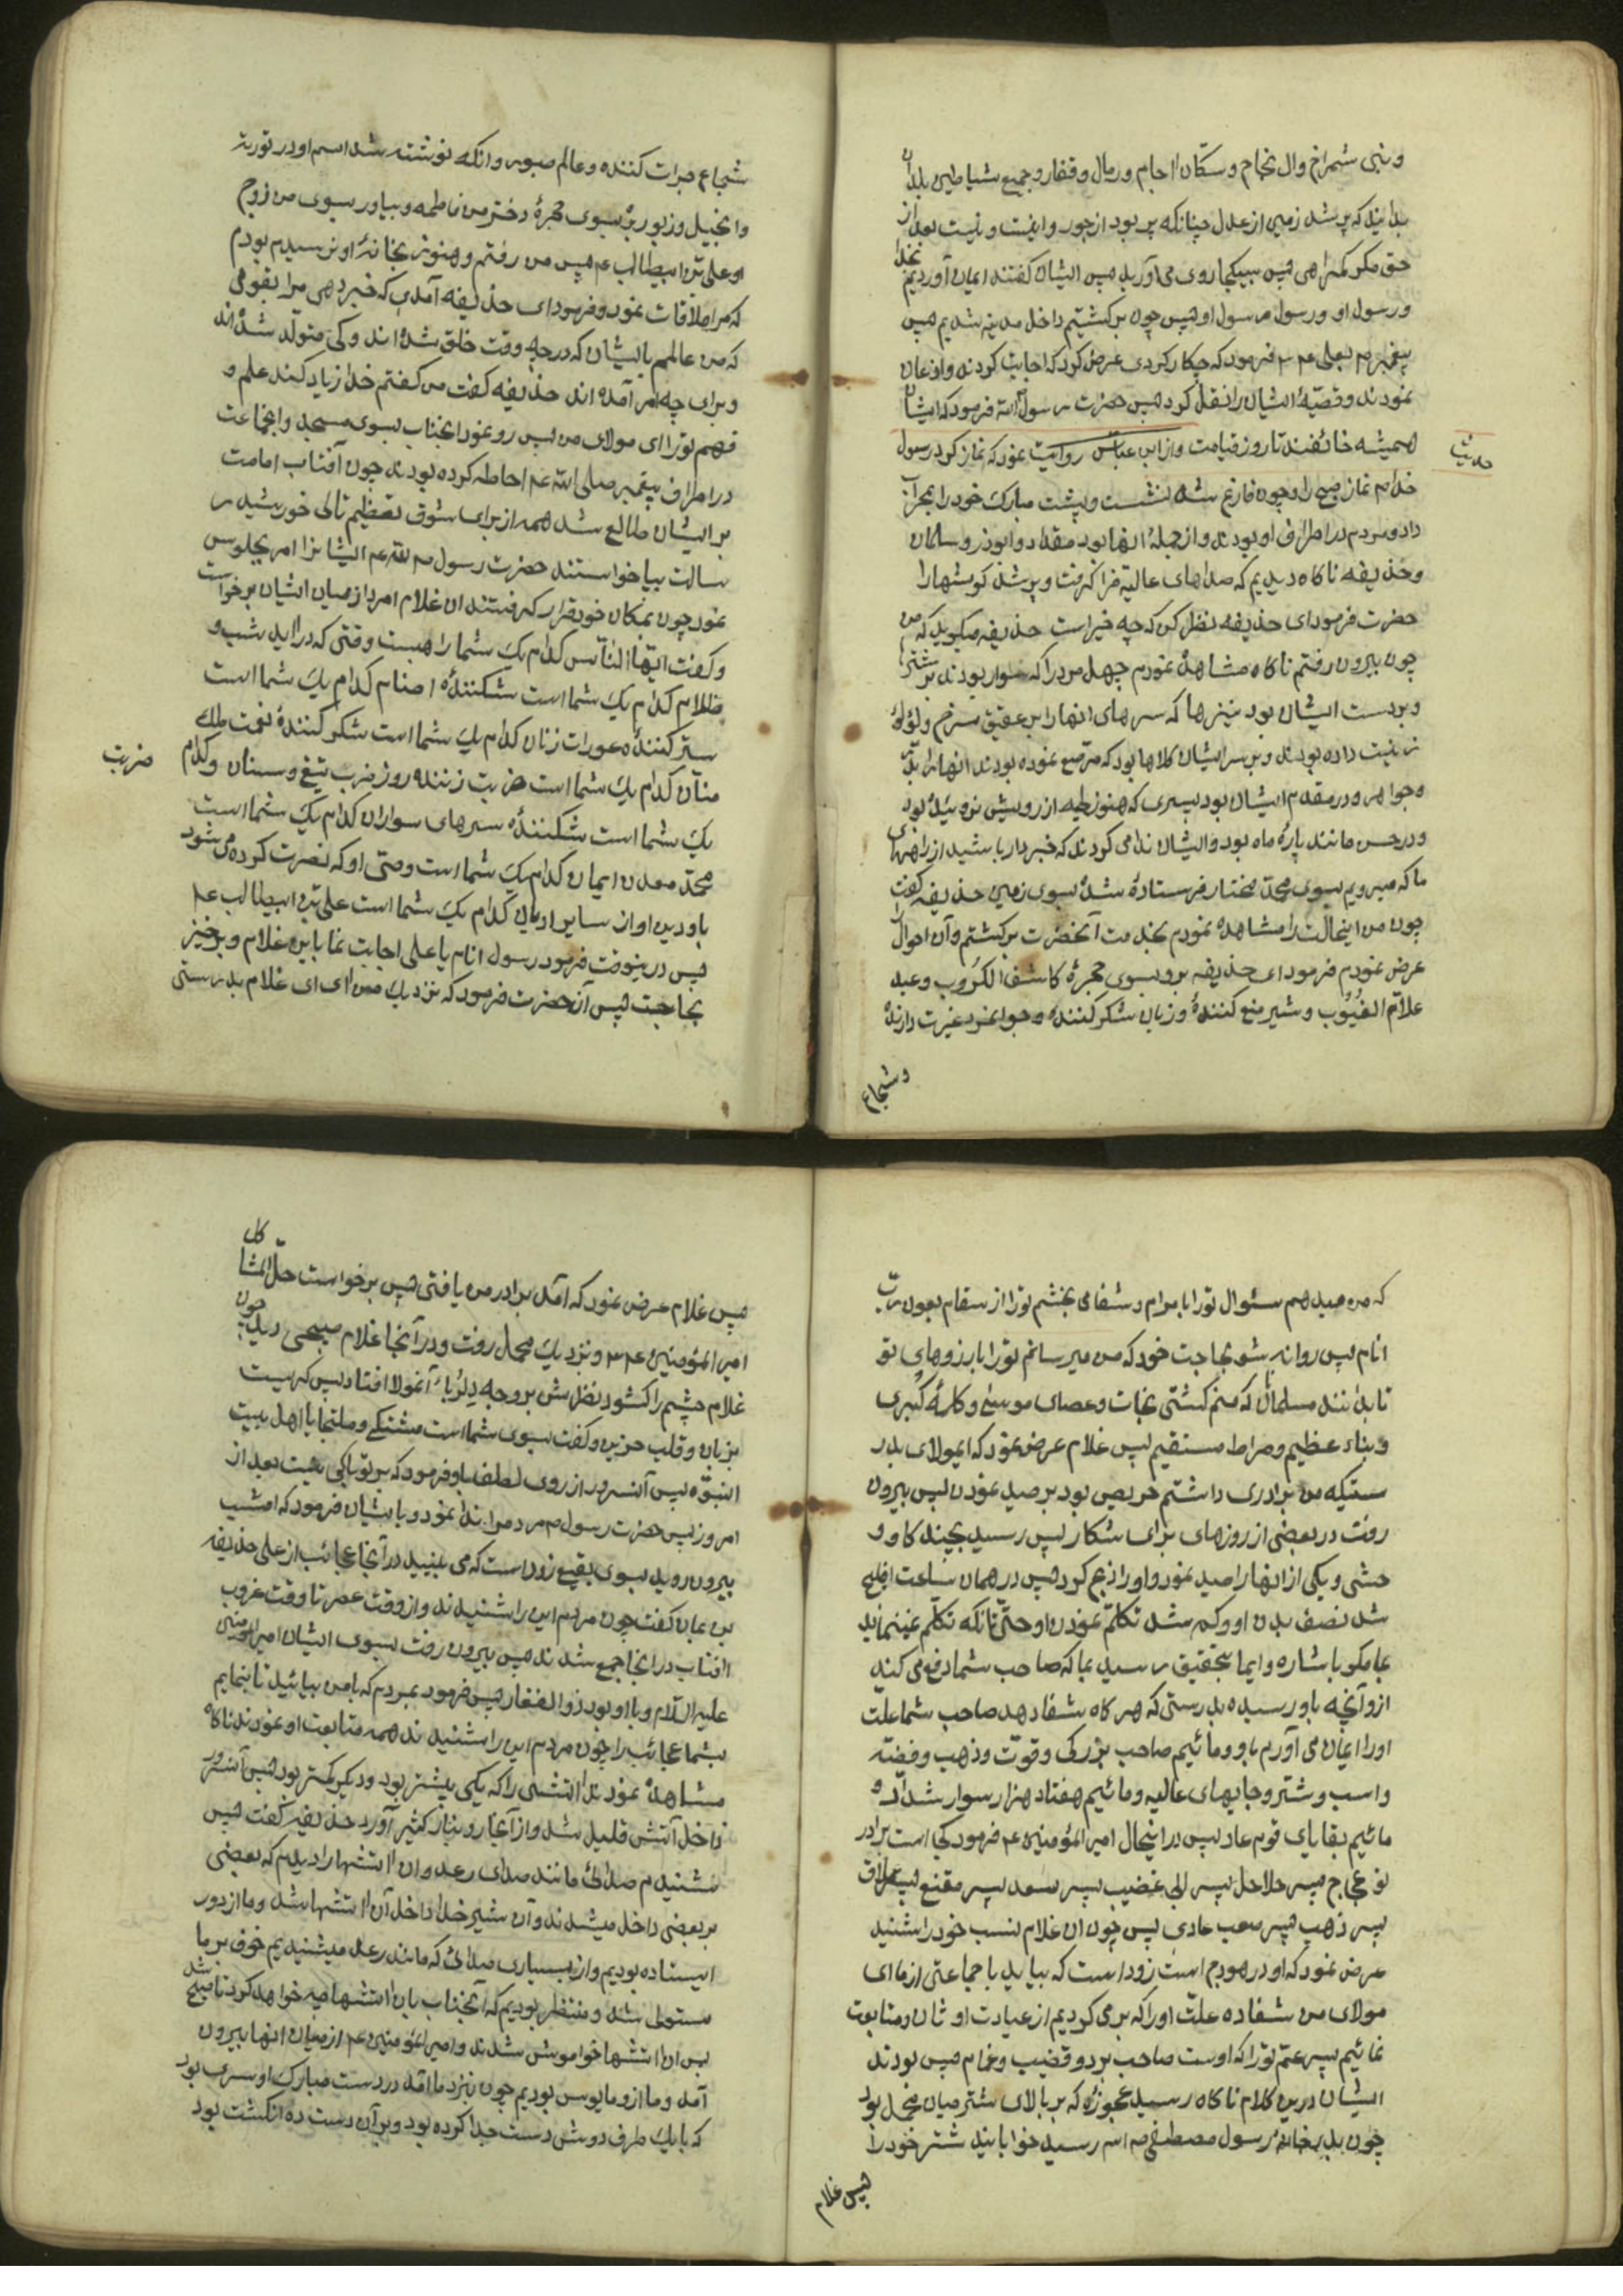 وبنی شمراخ وال نجاح وسکّان اجام ورمال وقفار وجمیع شیاطین بلدان
بدانید که پر شد زمین از عدل چنانکه پر بود از جور واینست ونیست بعد از
حق مگر گمراهی پس بیکجا روی می آورید پس ایشان گفتند ایمان آوردیم بخدا
ورسول او ورسول رسول او پس چون برگشتیم داخل مدینه شدیم پس
پیغمبر ص بعلی ع فرمود که چکار کردی عرض کرد که اجابت کردند واذعان
نمودند وقصّهٔ ایشان را نقل کرد پس حضرت رسول الله فرمود که ایشان
همیشه خائفند تا روز قیامت وازابن عباس روایت نمود که نماز کرد رسول
حدیث
خدا ص نماز صبح را وچون فارغ شد نشست وپشت مبارک خود را بمحراب
داد ومردم در اطراف او بودند واز جملهٔ انها بود مقداد وابوذر وسلمان
وحذیفه ناکاه دیدیم که صداهای عالیه فرا گرفت وپر شد گوشهارا
حضرت فرمود ای حذیفه نظر کن که چه خبر است حذیفه میگوید که من
چون بیرون رفتم ناکاه مشاهده نمودم چهل مرد را که سوار بودند بر شتر
وبردست ایشان بود نیزها که سرهای انهارا بر عقیق سرخ ولؤلؤ
زینت داده بودند وبر سر ایشان کلاها بود که مرصع نموده بودند انها را بدُرّ
وجواهر ودر مقدم ایشان بود پسری که هنوز خطیه از رویش نروئیده بود
ودر حسن مانند پارهٔ ماه بود وایشان ندا می کردند که خبردار باشید از راهزنهای
ما که میرویم بسوی محمّد مختار فرستادهٔ شدهٔ بسوی زمین حذیفه گفت
چون من اینحالت را مشاهده نمودم بخدمت آنحضرت برگشتم وآن احوال
عرض نمودم فرمود ای حذیفه برو بسوی حجرهٔ کاشف الکروب وعبد
علاّم الغُیُوب وشیر منع کنندهٔ وزبان شکر کنندهٔ وجوانمرد غیرت دارندهٔ
وشجاع
شجاع جرات کننده وعالم صبور وانکه نوشته شد اسم او در توریة
وانجیل وزبور برو بسوی حجرهٔ دختر من فاطمه وبیاور بسوی من زوج
او علی بن ابیطالب ع پس من رفتم وهنوز بخانهٔ او نرسیدم بودم
که مرا ملاقات نمود وفرمود ای حذیفه آمدی که خبر دهی مرا بقومی
که من عالمم بایشان که در چه وقت خلق شدهٔ اند وکی متولّد شدهٔ اند
وبرای چه امر آمدهٔ اند حذیفه گفت من گفتم خدا زیاد کند علم و
فهم تورا ای مولای من پس رو نمود انجناب بسوی مسجد وانجماعت
در اطراف پیغمبر صلی الله ع احاطه کرده بودند چون آفتاب امامت
بر ایشان طالع شد همه از برای شوق تعظیم تالی خورشید ر
سالت بپا خواستند حضرت رسول ص الله ع ایشانرا امر بجلوس
نمود چون بمکان خود قرار گرفتند ان غلام امرد از میان ایشان برخواست
وگفت ایّها النّاس کدام یک شما راهبست وقتی که درآید شب و
ظلام کدام یک شما است شکنندهٔ اصنام کدام یک شما است
ستر کنندهٔ عورات زنان کدام یک شما است شکر کنندهٔ نعمت ملک
منّان کدام یک شما است ضربت زننده روز ضرب تیغ وسنان وکدام
ضربت
یک شما است شکنندهٔ سرهای سواران کدام یک شما است
محمّد معدن ایمان کدام یک شما است وصیّ او که نصرت کرده می شود
باو دین او از سایر ادیان کدام یک شما است علی بن ابیطالب ع
پس درینوقت فرمود رسول انام یا علی اجابت نما باین غلام وبرخیز
بحاجت پس آن حضرت فرمود که نزدیک من ای ای غلام بدرستی
که من میدهم سئوال تورا بابرام وشفا می بخشم تورا از سقام بعون ربّ
انام پس روانه شو بحاجت خود که من میرسانم تورا بارزوهای تو
تا بدانند مسلمانان که منم کشتی نجات وعصای موسی وکلمهٔ کبری
ونباء عظیم وصراط مستقیم پس غلام عرض نمود که ایمولای بدر
ستیکه من برادری داشتم حریص بود بر صید نمودن پس بیرون
رفت در بعضی از روزهای برای شکار پس رسید بچند گاو و
حشی ویکی از انها را صید نمود واورا ذبح کرد پس در همان ساعت افلیج
شد نصف بدن او وکم شد تکلّم نمودن او حتّی انکه تکلّم نمینماید
بما مگر باشاره وایما بتحقیق رسید بما که صاحب شما دفع می کند
ازو آنچه باو رسیده بدرستی که هر گاه شفا دهد صاحب شما علّت
اورا ایمان می آورم باو ومائیم صاحب بزرگی وقوّت وذهب وفضّه
واسب وشتر وجایهای عالیه ومائیم هفتاد هزار سوار شدّاد و
مائیم بقایای قوم عاد پس در اینحال امیر المؤمنین ع فرمود کجا است برادر
تو عجاج پسر حلاحل پسر ابی غضیب پسر سعد پسر مقنع پسر عملاق
پسر ذهب پسر صعب عادی پس چون ان غلام نسب خود را شنید
عرض نمود که او در هودج است زود است که بیاید با جماعتی از ما ای
مولای من شفا ده علّت اورا که برمی گردیم از عبادت اوثان ومتابعت
نمائیم پسر عمّ تورا که اوست صاحب برد وقضیب وغمام پس بودند
ایشان درین کلام ناکاه رسید عجوزهٔ که بر بالای شتر میان محمل بود
چون بدر خانهٔ رسول مصطفی ص اله رسید خوابانید شتر خود را
پس غلام
پس غلام عرض نمود که آمد برادر من یا فتی پس برخواست حلّال المشاکل
امیر المؤمنین ع ونزدیک محمل رفت ودر آنجا غلام صبیحی دید چون
غلام چشم را کشود نظرش بروجه دلربا آنمولا افتاد پس گریست
بزبان وقلب حزین وگفت بسوی شما است مشتکی وملتجا یا اهل بیت
النبوّه پس آنسرور از روی لطف باو فرمود که بر تو باکی نیست بعد از
امروز پس حضرت رسول ص مردم را ندا نمود وبایشان فرمود که امشب
بیرون روید بسوی بقیع زود است که می بینید در آنجا عجائب از علی حذیفه
بن یمان گفت چون مردم این را شنیدند واز وقت عصر تا وقت غروب
افتاب در انجا جمع شدند پس بیرون رفت بسوی ایشان امیر المؤمنین
علیه السّلام وبا او بود ذو الفقار پس فرمود بمردم که با من بیائید تا بنمایم
بشما عجائب را چون مردم این را شنیدند همه متابعت او نمودند ناکاه
مشاهدهٔ نمودند آتشی را که یکی بیشتر بود ودیگر کمتر بود پس آنسرور
داخل آتش قلیل شد واز آنجا رو بنار کثیر آورد حذیفه گفت پس
شنیدم صدائی مانند صدای رعد وان آتشها را دیدم که بعضی
بر بعضی داخل میشدند وآن شیر خدا داخل آن آتشها شد وما از دور
ایستاده بودیم واز بسیاری صدائی که مانند رعد میشنیدیم خوف بر ما
مستولی شد ومنتظر بودیم که آنجناب باین آتشها چه خواهد کرد تا صبح شد
پس ان آتشها خواموش شدند وامیر المؤمنین ع از میان انها بیرون
آمد وما ازو مایوس بودیم چون نزد ما آمد در دست مبارک او سری بود
که با یک طرف دوشی دست جدا کرده بود وبر آن دست ده انگشت بود